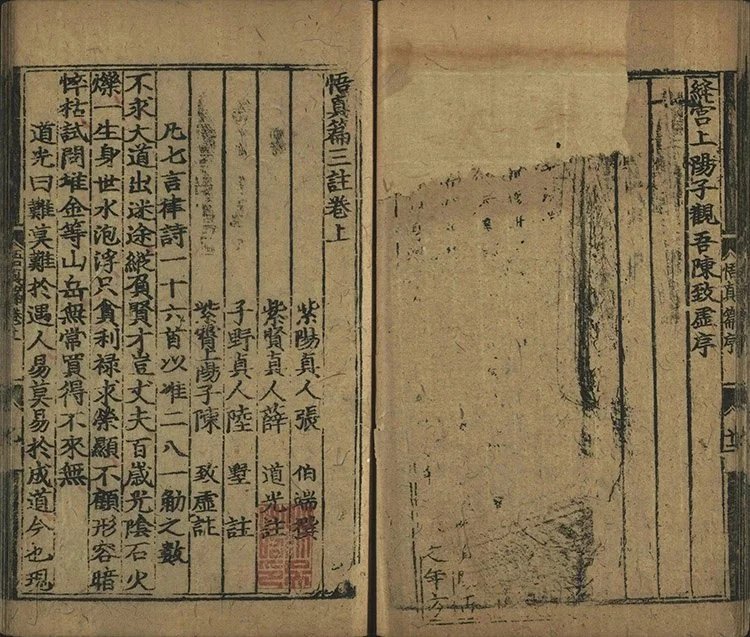 悟真篇序
絳宮上陽子觀吾陳致虛序
悟真篇三註卷上
紫陽真人張 伯端 撰
紫賢真人薛 道光 註
子野真人陸 墅 註
上陽子陳 致虛 註
凡七言律詩一十六首以准二八一觔之數
不求大道出迷途縱負賢才豈丈夫百歲光陰石火
爍一生身世水泡浮只貪利祿求榮顯不顧形容暗
悴枯試問堆金等山岳無常買得不來無
道光曰難莫難於遇人易莫易於成道今也現